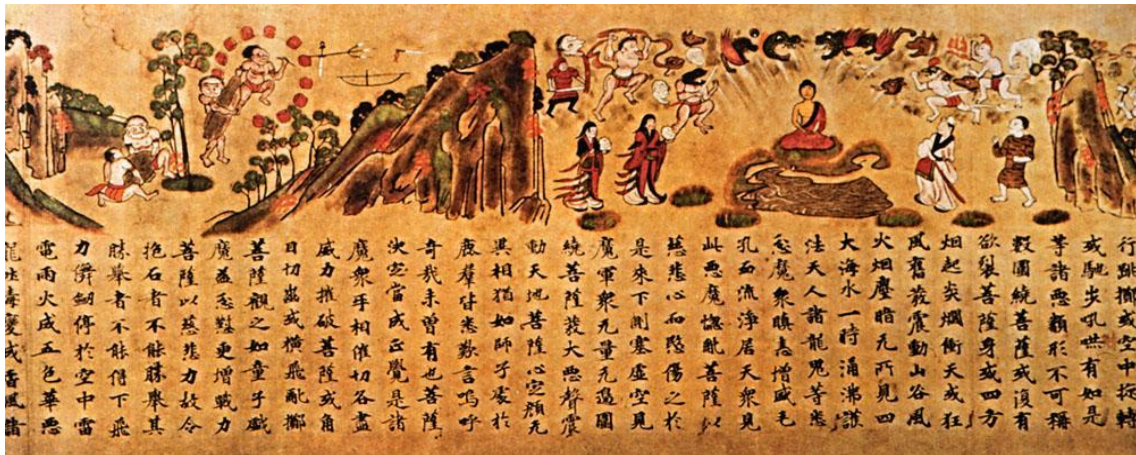 行跳擲或空中旋轉
或馳步吼喚有如是
等諸惡類形不可稱
數圍繞菩薩或復有
欲裂菩薩身或四方
烟起炎爛衝天或狂
風奮發震動山谷風
火烟塵暗无所見四
大海水一時涌沸護
法天人諸龍鬼等悉
忿魔衆瞋恚增盛毛
孔血流淨居天衆見
此惡魔惱亂菩薩以
慈悲心而愍傷之於
是來下側塞虛空見
魔軍衆无量无邊圍
繞菩薩發大惡聲震
動天地菩薩心定顏无
異相猶如師子處於
鹿羣皆悉歎言嗚呼
奇哉未曾有也菩薩
決定當成正覺是諸
魔衆互相催切各盡
威力摧破菩薩或角
目切齒或橫飛亂擲
菩薩觀之如童子戲
魔益忿懟更增戰力
菩薩以慈悲力故令
抱石者不能勝舉其
勝舉者不能得下飛
刀儛劒停於空中雷
電雨火成五色華惡
龍吐毒變成香風諸